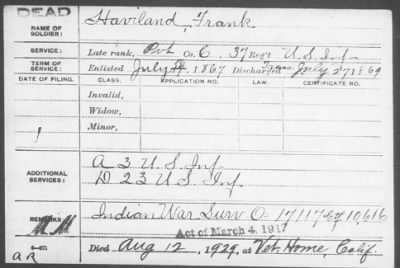 DEAD
NAME OF SOLDIER: Haviland, Frank
SERVICE: Late rank, Pvt Co. C, 37 Reg't U.S. Inf.
TERM OF SERVICE: Enlisted July 1867 Discharged Trans. July 27 1869
DATE OF FILING. CLASS. APPLICATION NO. LAW. CERTIFICATE NO.
Invalid,
Widow,
Minor,
ADDITIONAL SERVICES: A 3 U.S. Inf.
D 23 U.S. Inf.
REMARKS Indian War Surv O. 17117 10,616
Act of March 4, 1917
M.M.
Died Aug 12, 1929, at Vet. Home, Calif
AR